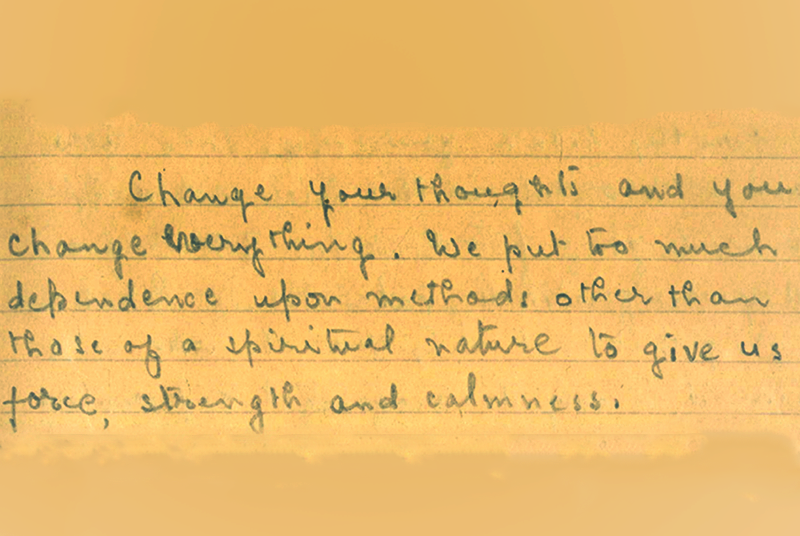 Change your thoughts and you
change everything. We put to much
dependence upon methods other than
those of a spiritual nature to give us
force, strength and calmness.